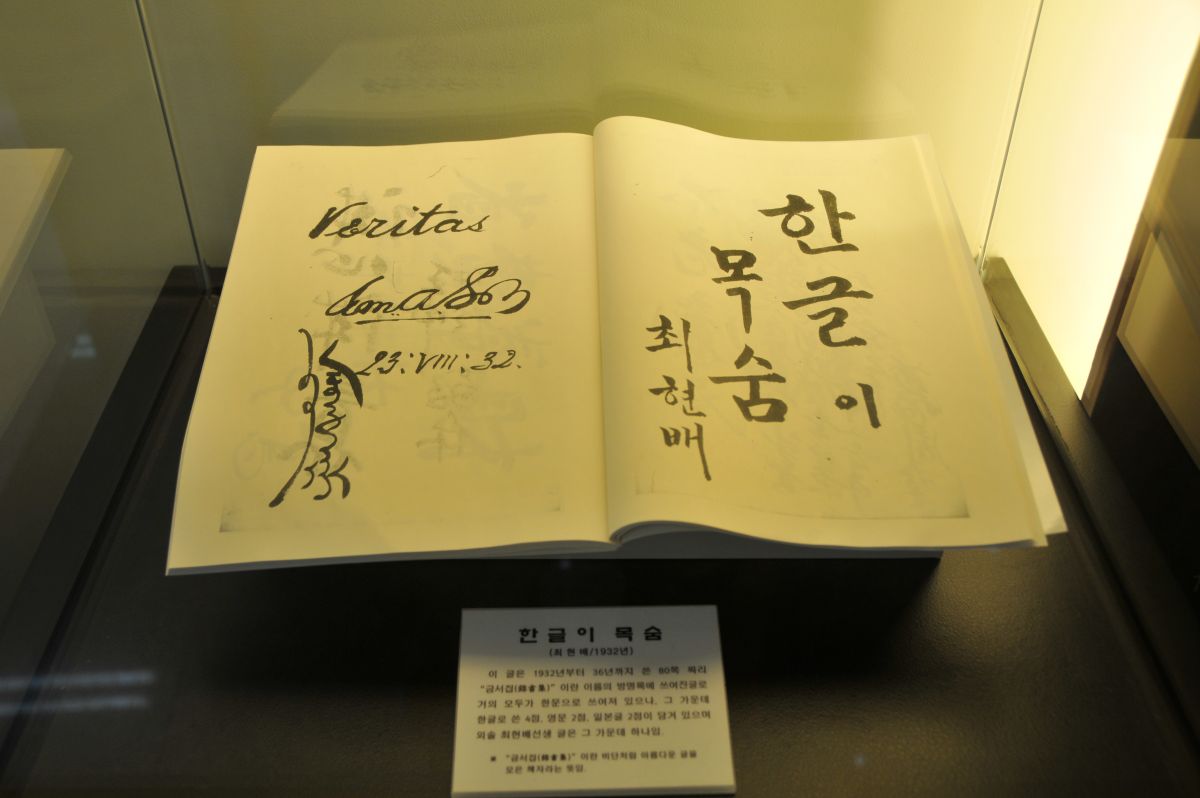 Veritas
23:VIII:32.
한글이
목숨
최현배
한글이 목숨
(최현배/1932년)
이 글은 1932년부터 36년까지 쓴 80쪽 짜리
"금서집(錦書集)" 이란 이름의 방명록에 쓰여진글로
거의 모두가 한문으로 쓰여져 있으나, 그 가운데
한글로 쓴 4점, 영문 2점, 일본글 2점이 담겨 있으며
외솔 최현배선생 글은 그 가운데 하나임.
※ "금서집(錦書集)" 이란 비단처럼 아름다운 글을
모은 책자라는 뜻임.